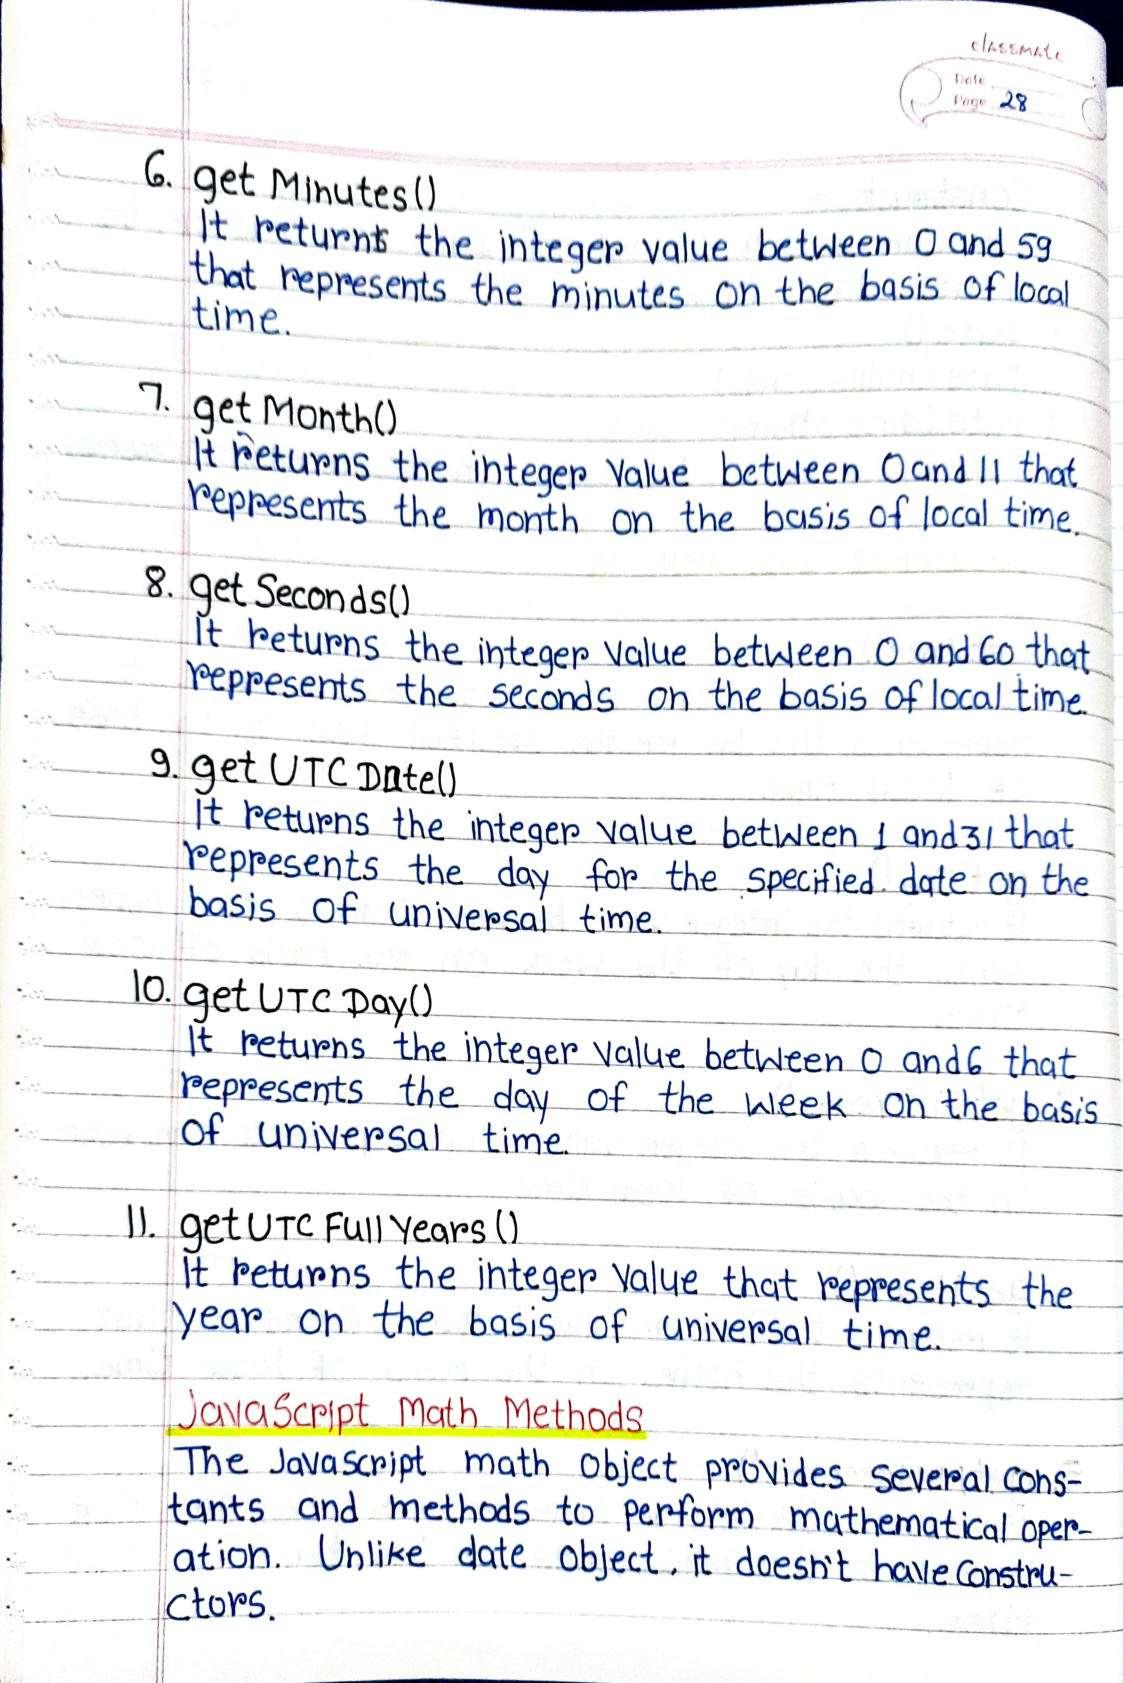 classmate
Date
Page 28
6. get Minutes()
It returns the integer value between 0 and 59
that represents the minutes on the basis of local
time.
7. get Month()
It returns the integer value between 0 and 11 that
represents the month on the basis of local time.
8. get Seconds()
It returns the integer value between 0 and 60 that
represents the seconds on the basis of local time.
9. get UTC Date()
It returns the integer value between 1 and 31 that
represents the day for the specified date on the
basis of universal time.
10. get UTC Day()
It returns the integer value between 0 and 6 that
represents the day of the week on the basis
of universal time.
11. get UTC Full Years ()
It returns the integer value that represents the
year on the basis of universal time.
JavaScript Math Methods
The Javascript math object provides several cons-
tants and methods to perform mathematical oper-
ation. Unlike date object, it doesn't have constru-
ctors.